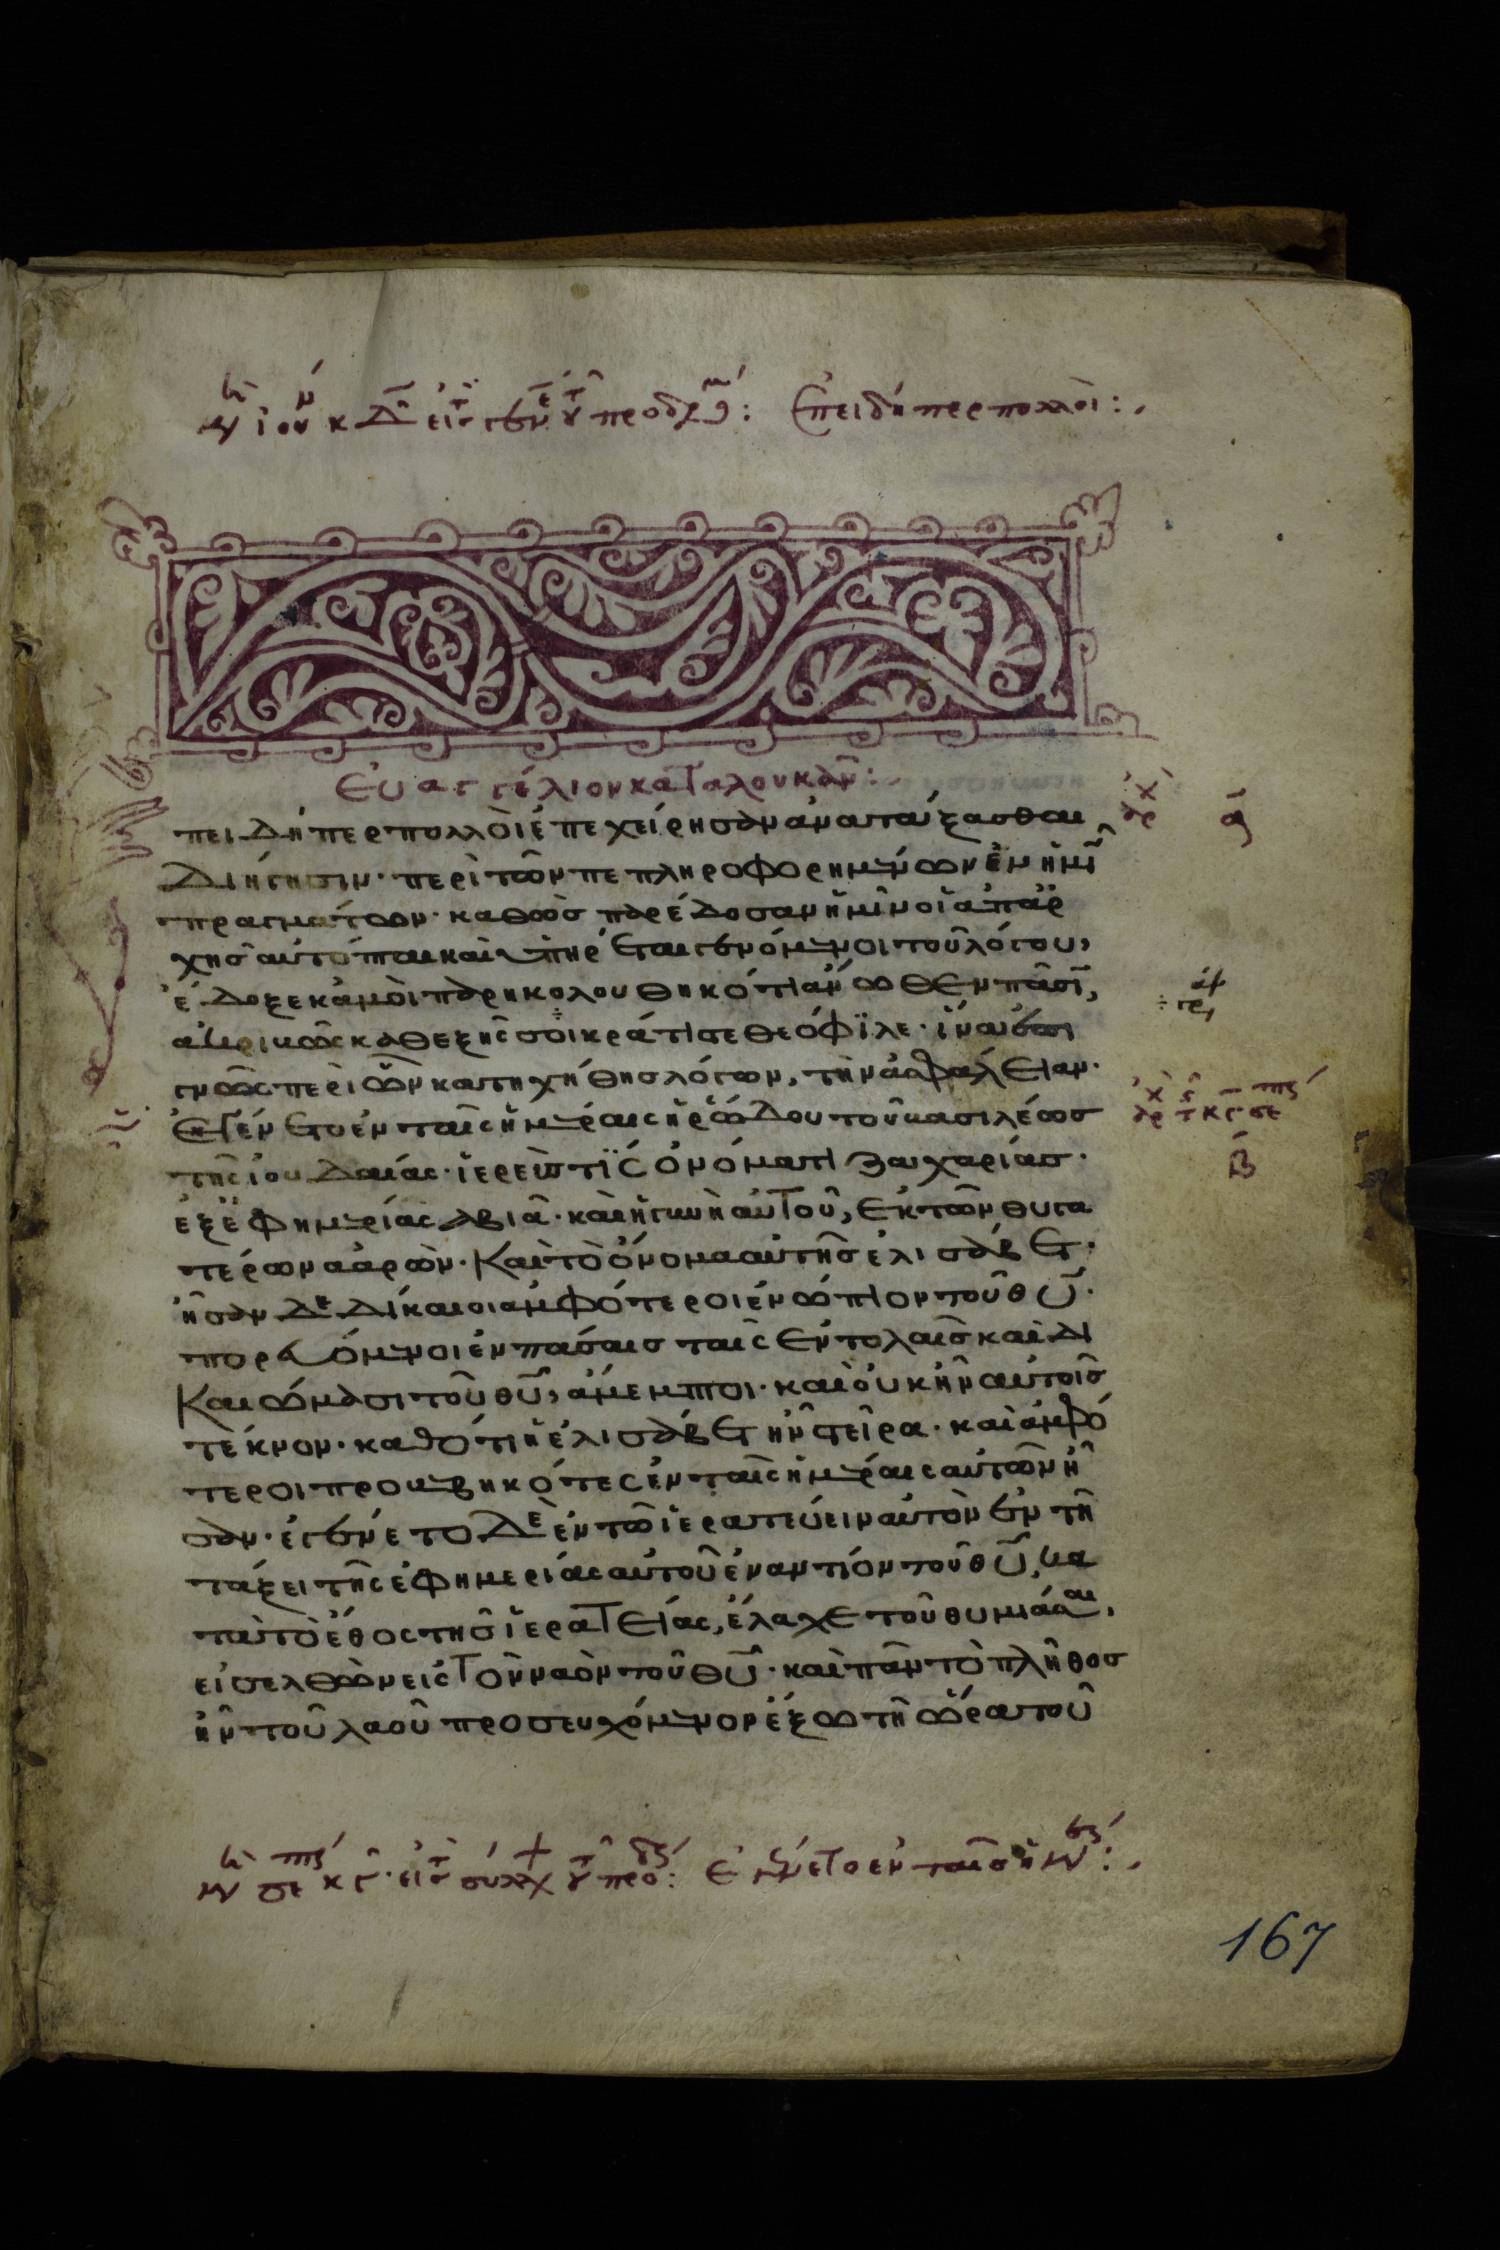 Ἐπειδήπερ πολλοὶ:
Ἐυαγγέλιον κατα λουκᾶν:
πειδήπερ πολλοὶ ἐπεχείρησαν ἀνατάξασθαι
διήγησιν· περὶ τῶν πεπληροφορημένων ἐν ἡμῖ
πραγμάτων· καθὼς παρέδοσαν ἡμῖν οἱ ἀπαρ
χῆς αὐτόπται καὶ ὑπηρέται γενόμενοι τοῦ λόγου,
ἔδοξε κἀμοὶ παρηκολουθηκότι ἄνωθεν πᾶσι,
ἀκριβῶς καθεξῆς σοι κράτιστε θεόφϊλε· ἵνα ἐπι
γνῶς περὶ ὧν κατηχήθης λόγων, τὴν ἀσφάλειαν·
Ἐγένετο ἐν ταῖς ἡμέραις ἡρώδου τοῦ βασιλέως
τῆς ἰουδαίας· ἱερεὺς τϊς ὀνόματι ζαχαρίας·
ἐξ ἐφημερίας ἀβιᾶ· καὶ ἡ γυνὴ αὐτοῦ, ἐκ τῶν θυγα
τέρων ἀαρὼν· Καὶ τὸ ὄνομα αὐτῆς ἐλισάβετ·
ἦσαν δὲ δίκαιοι ἀμφότεροι ἐνώπιον τοῦ θυ·
πορευόμενοι ἐν πάσαις ταῖς ἐντολαῖς καὶ δι
Καιώμασι τοῦ θυ, ἄμεμπτοι· καὶ οὐκ ἦν αὐτοῖς
τέκνον· καθότι ἡ ἐλισάβετ ἦν στεῖρα· καὶ ἀμφό
τεροι προβεβηκότες ἐν ταῖς ἡμέραις αὐτῶν ἦ
σαν· ἐγένετο δὲ ἐν τῶ ἱερατεύειν αὐτὸν ἐν τῆ
τάξει τῆς ἐφημερίας αὐτοῦ ἐναντίον τοῦ θυ, κα
τὰ τὸ ἔθος τῆς ἱερατείας, ἔλαχε τοῦ θυμιάσαι,
εἰσελθὼν εἰς τὸν ναὸν τοῦ θυ· καὶ πᾶν τὸ πλῆθος
ἦν τοῦ λαοῦ προσευχόμενον ἔξω τῆ ὥρα τοῦ
ἐγένετο ἐν ταῖς ἡμ:
167